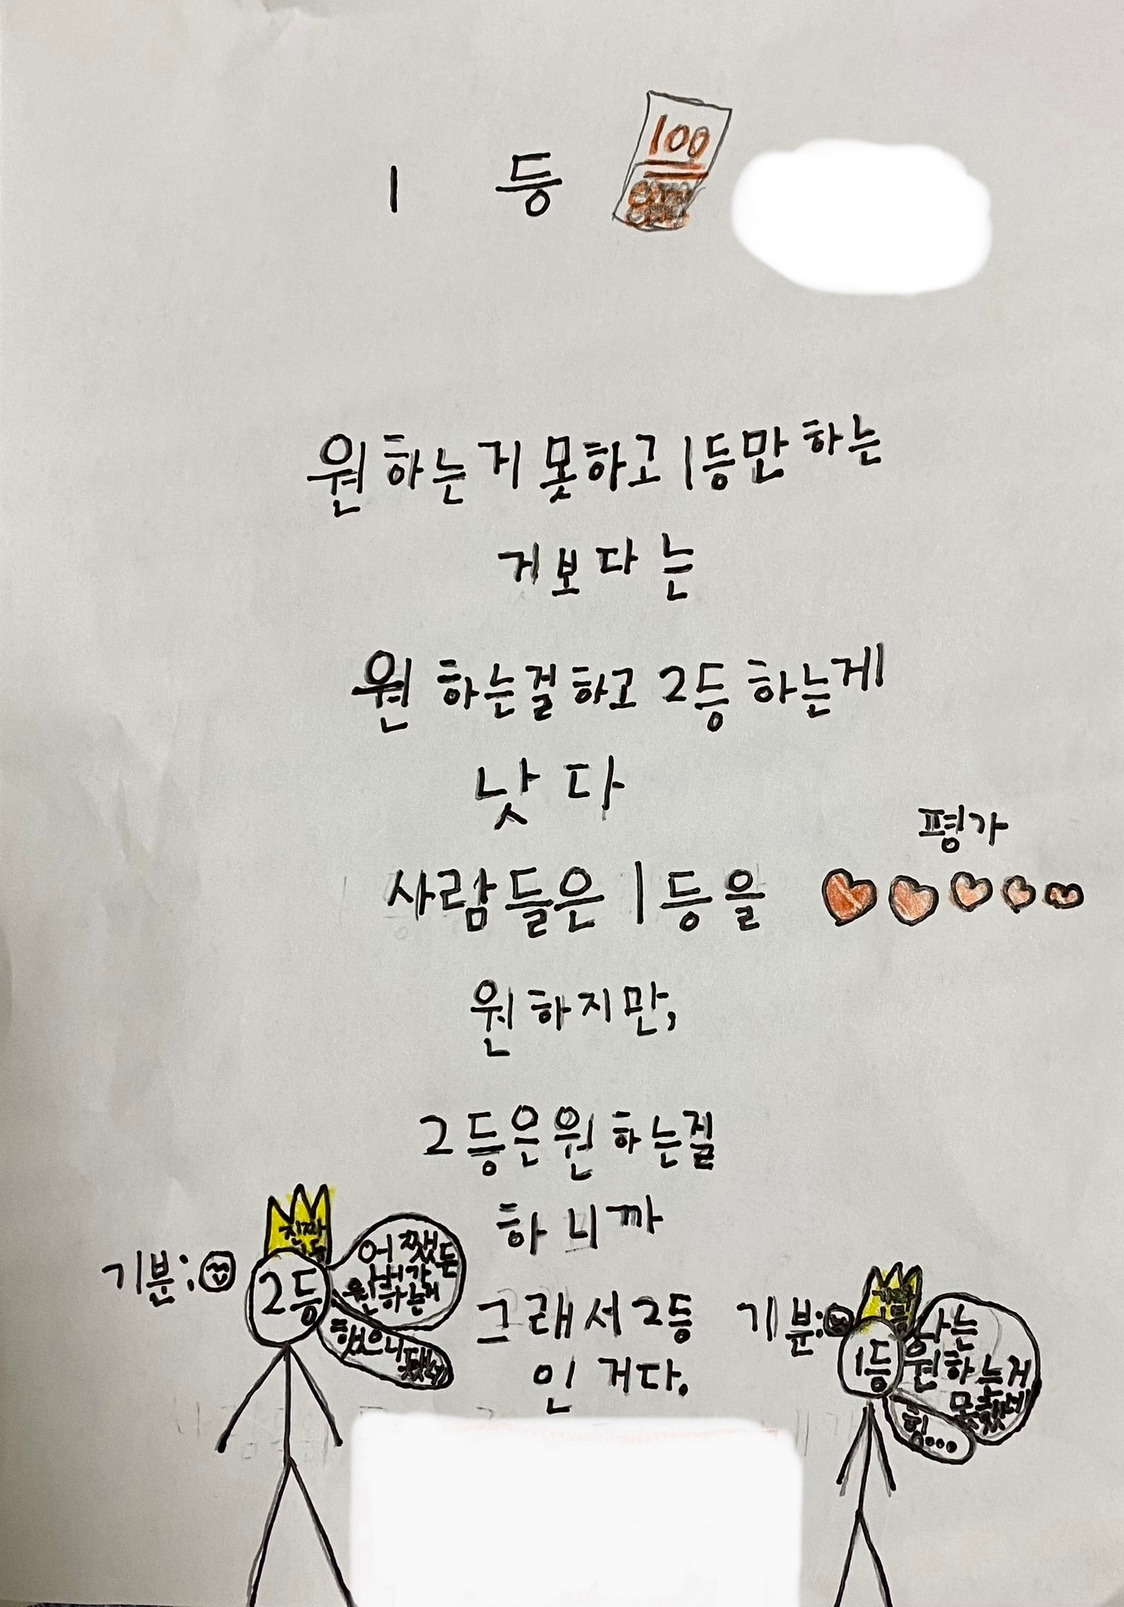 1 등
100
원하는거 못하고 1등만 하는
거보다는
원하는걸하고 2등 하는게
낫다
평가
사람들은 1등을
원하지만,
2등은 원하는걸
하니까
그래서 2등
인 거다.
기분:
진짜
2등
어쨌든
내가
원하는거
했으니
기분:
1등
나는
원하는거
못했네
힝...